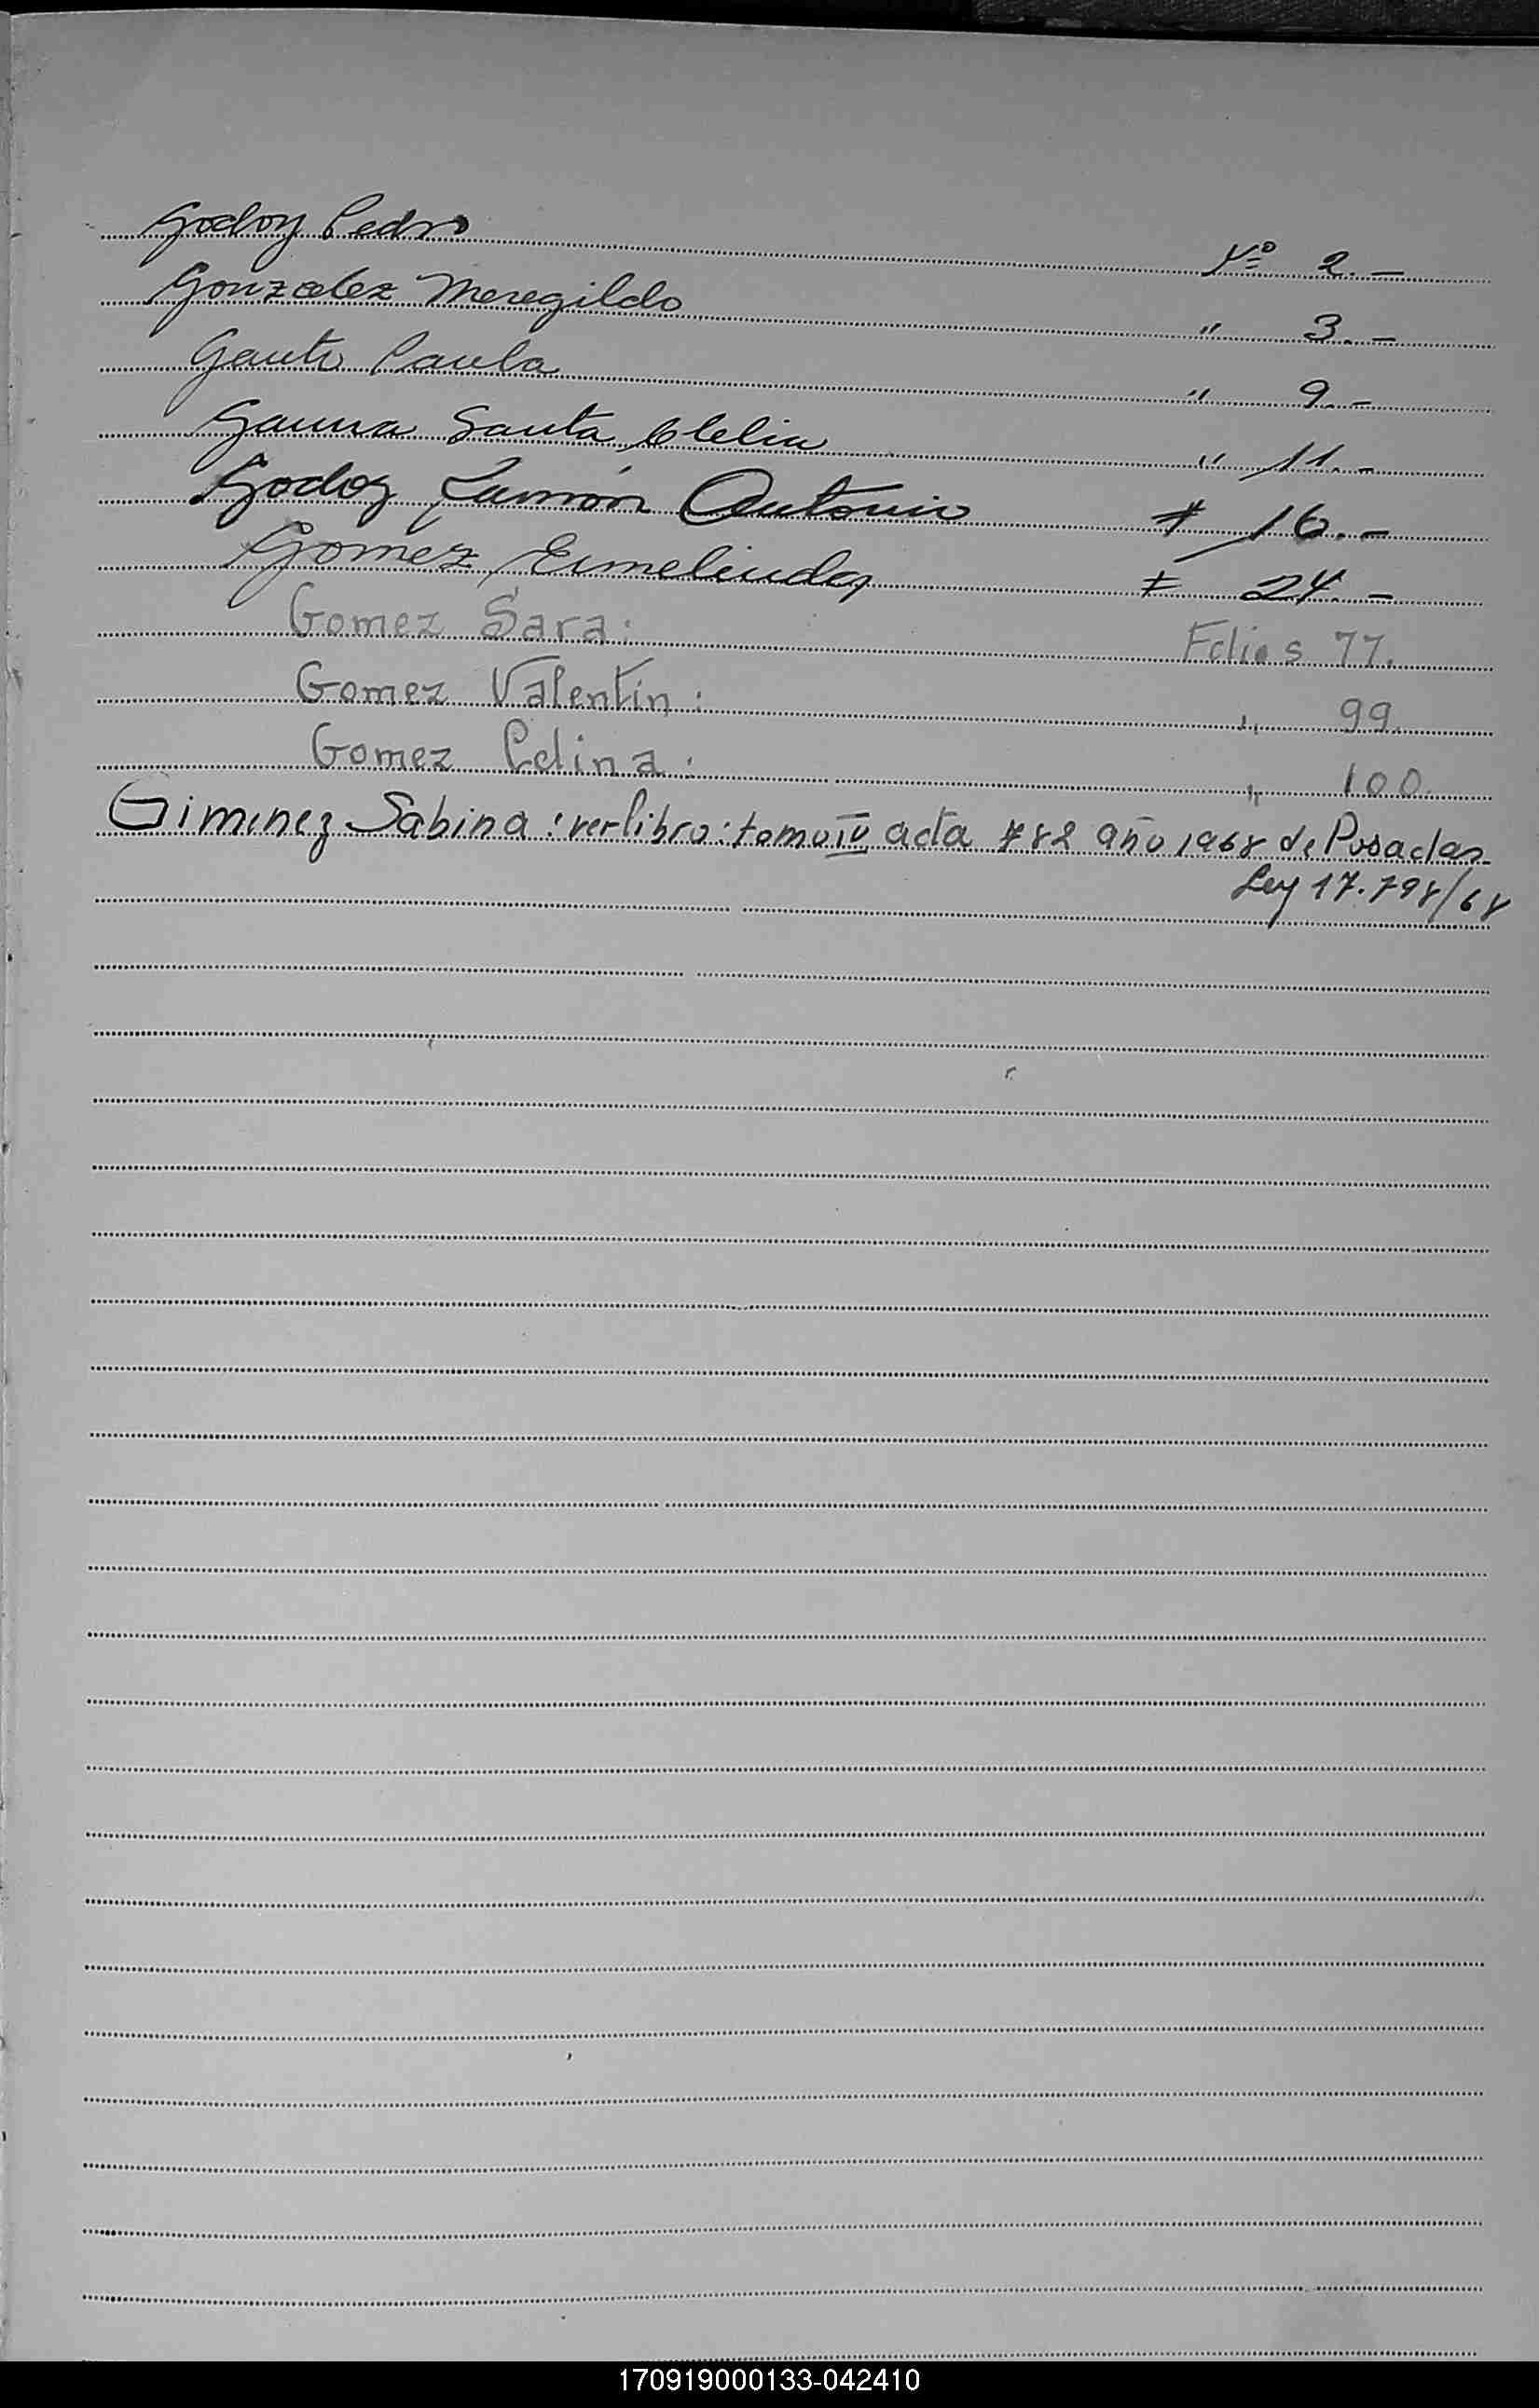 Godoy Pedro Nº 2.—
Gonzalez Meregildo " 3.—
Gauto Paula " 9.—
Gauna Santa Clelia " 11.—
Godoy Ramón Antonio " 16.—
Gomez Ermelinda " 24.—
Gomez Sara: Folios 77.
Gomez Valentín: " 99.
Gomez Celina: " 100.
Gimenez Sabina: ver libro: tomo IV acta 782 año 1968 de Posadas
Ley 17.798/68
170919000133-042410